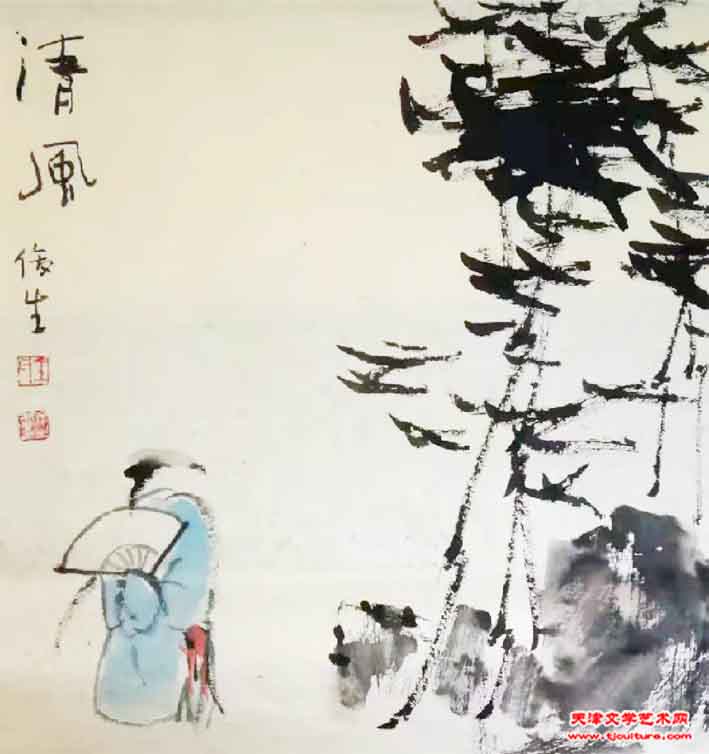 清風
俊生
天津文学艺术网
www.tjculture.com